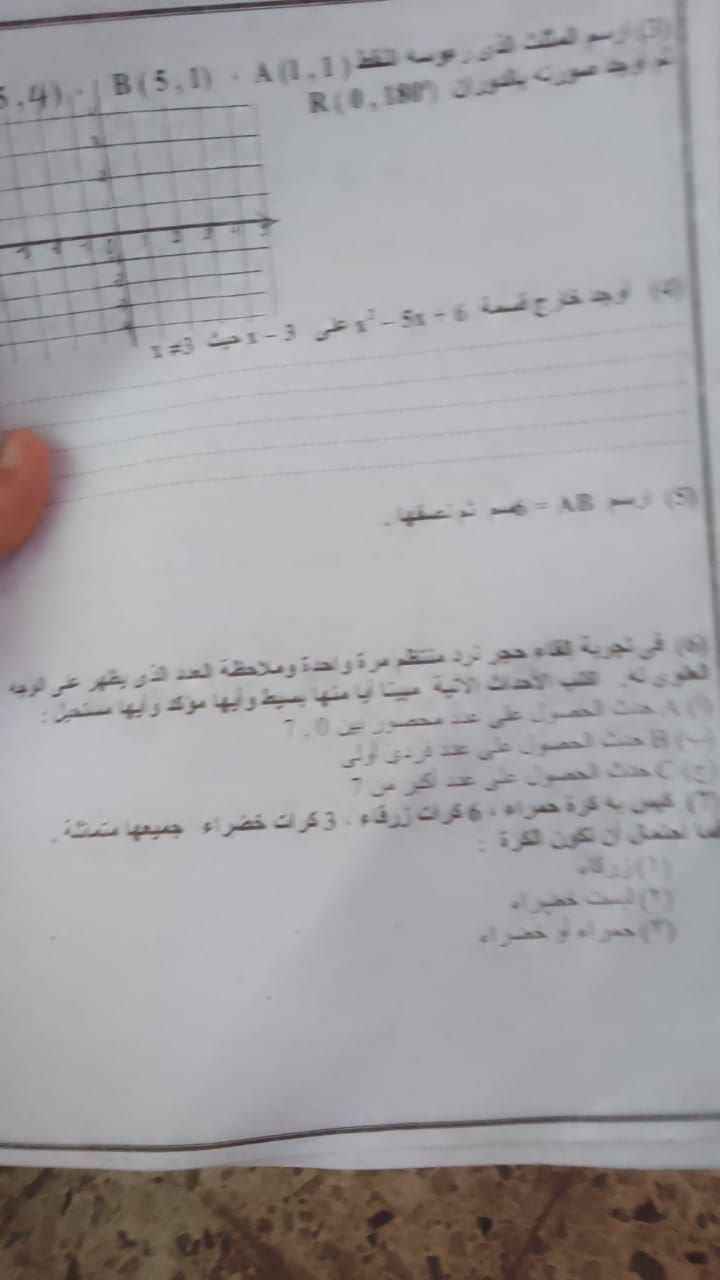 (3) ارسم المثلث الذى رءوسه النقط A(1,1) ، B(5,1) ، 5,4)
ثم أوجد صورته بالدوران R(0,180°)
1 2 3 4 5
(4) أوجد خارج قسمة x² - 5x + 6 على x - 3 حيث x≠3
(5) ارسم AB = 6سم ثم نصفها .
(6) فى تجربة إلقاء حجر نرد منتظم مرة واحدة وملاحظة العدد الذى يظهر على الوجه
العلوى له. اكتب الأحداث الآتية مبينا أيا منها بسيط وأيها مؤكد وأيها مستحيل :
(أ) A حدث الحصول على عدد محصور بين 0 , 7
(ب) B حدث الحصول على عدد فردى أولى
(ج) C حدث الحصول على عدد أكبر من 7
(7) كيس به كرة حمراء ، 6 كرات زرقاء ، 3 كرات خضراء جميعها متماثلة .
ما احتمال أن تكون الكرة :
(١) زرقاء
(٢) ليست خضراء
(٣) حمراء أو خضراء